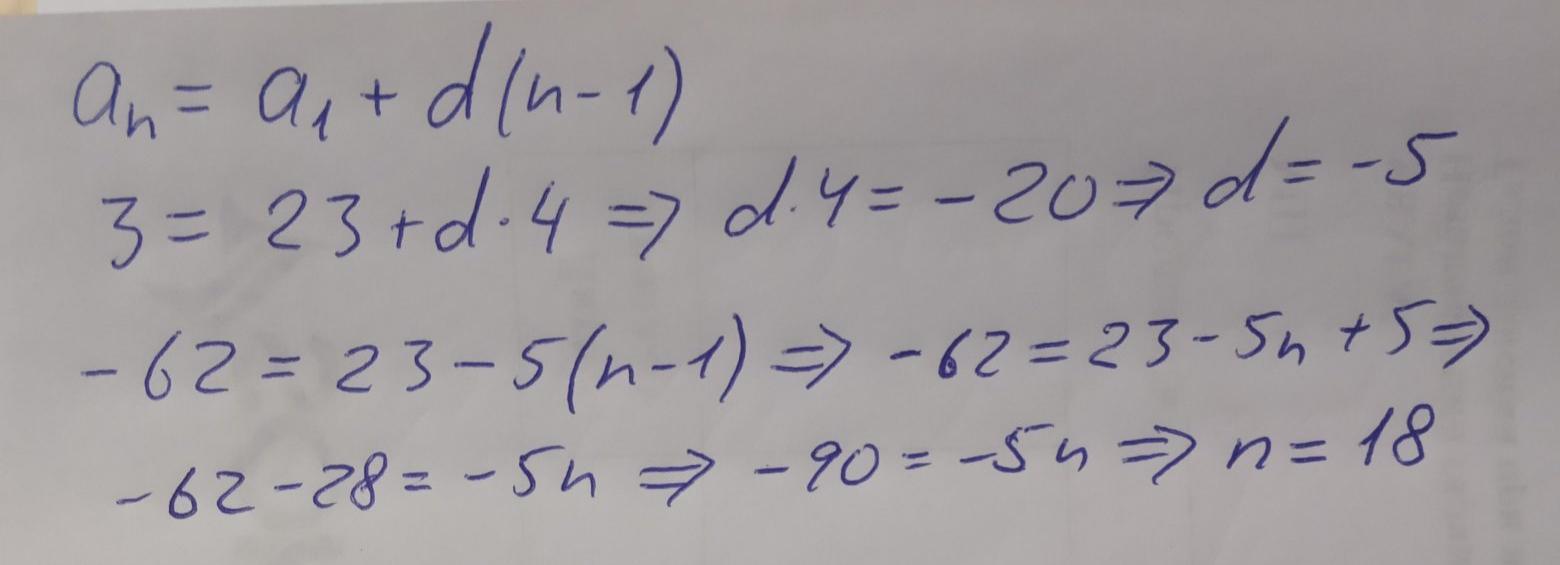 aₙ = a₁ + d(n-1)
3 = 23 + d·4 ⇒ d·4 = -20 ⇒ d = -5
-62 = 23 - 5(n-1) ⇒ -62 = 23 - 5n + 5 ⇒
-62 - 28 = -5n ⇒ -90 = -5n ⇒ n = 18